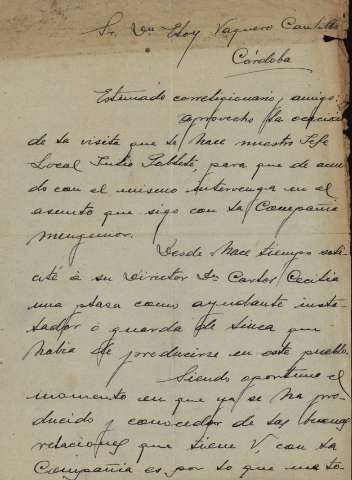 Sr. Dn. Eloy Vaquero Cantillo
Córdoba
Estimado correligionario y amigo:
aprovecho la ocasion
de la visita que le hace nuestro Jefe
Local Julio para que de acuer
do con el mismo intervenga en el
asunto que sigo con la Compañia
Mengemor.
Desde hace tiempo soli
cité á su Director Dn Carlos Cecilia
una plaza como ayudante insta-
lador ó guarda de linea que
habia de producirse en este pueblo.
Siendo oportuno el
momento en que ya se ha pro-
ducido y conocedor de las buenas
relaciones que tiene V. con la
Compañia es por lo que me to-